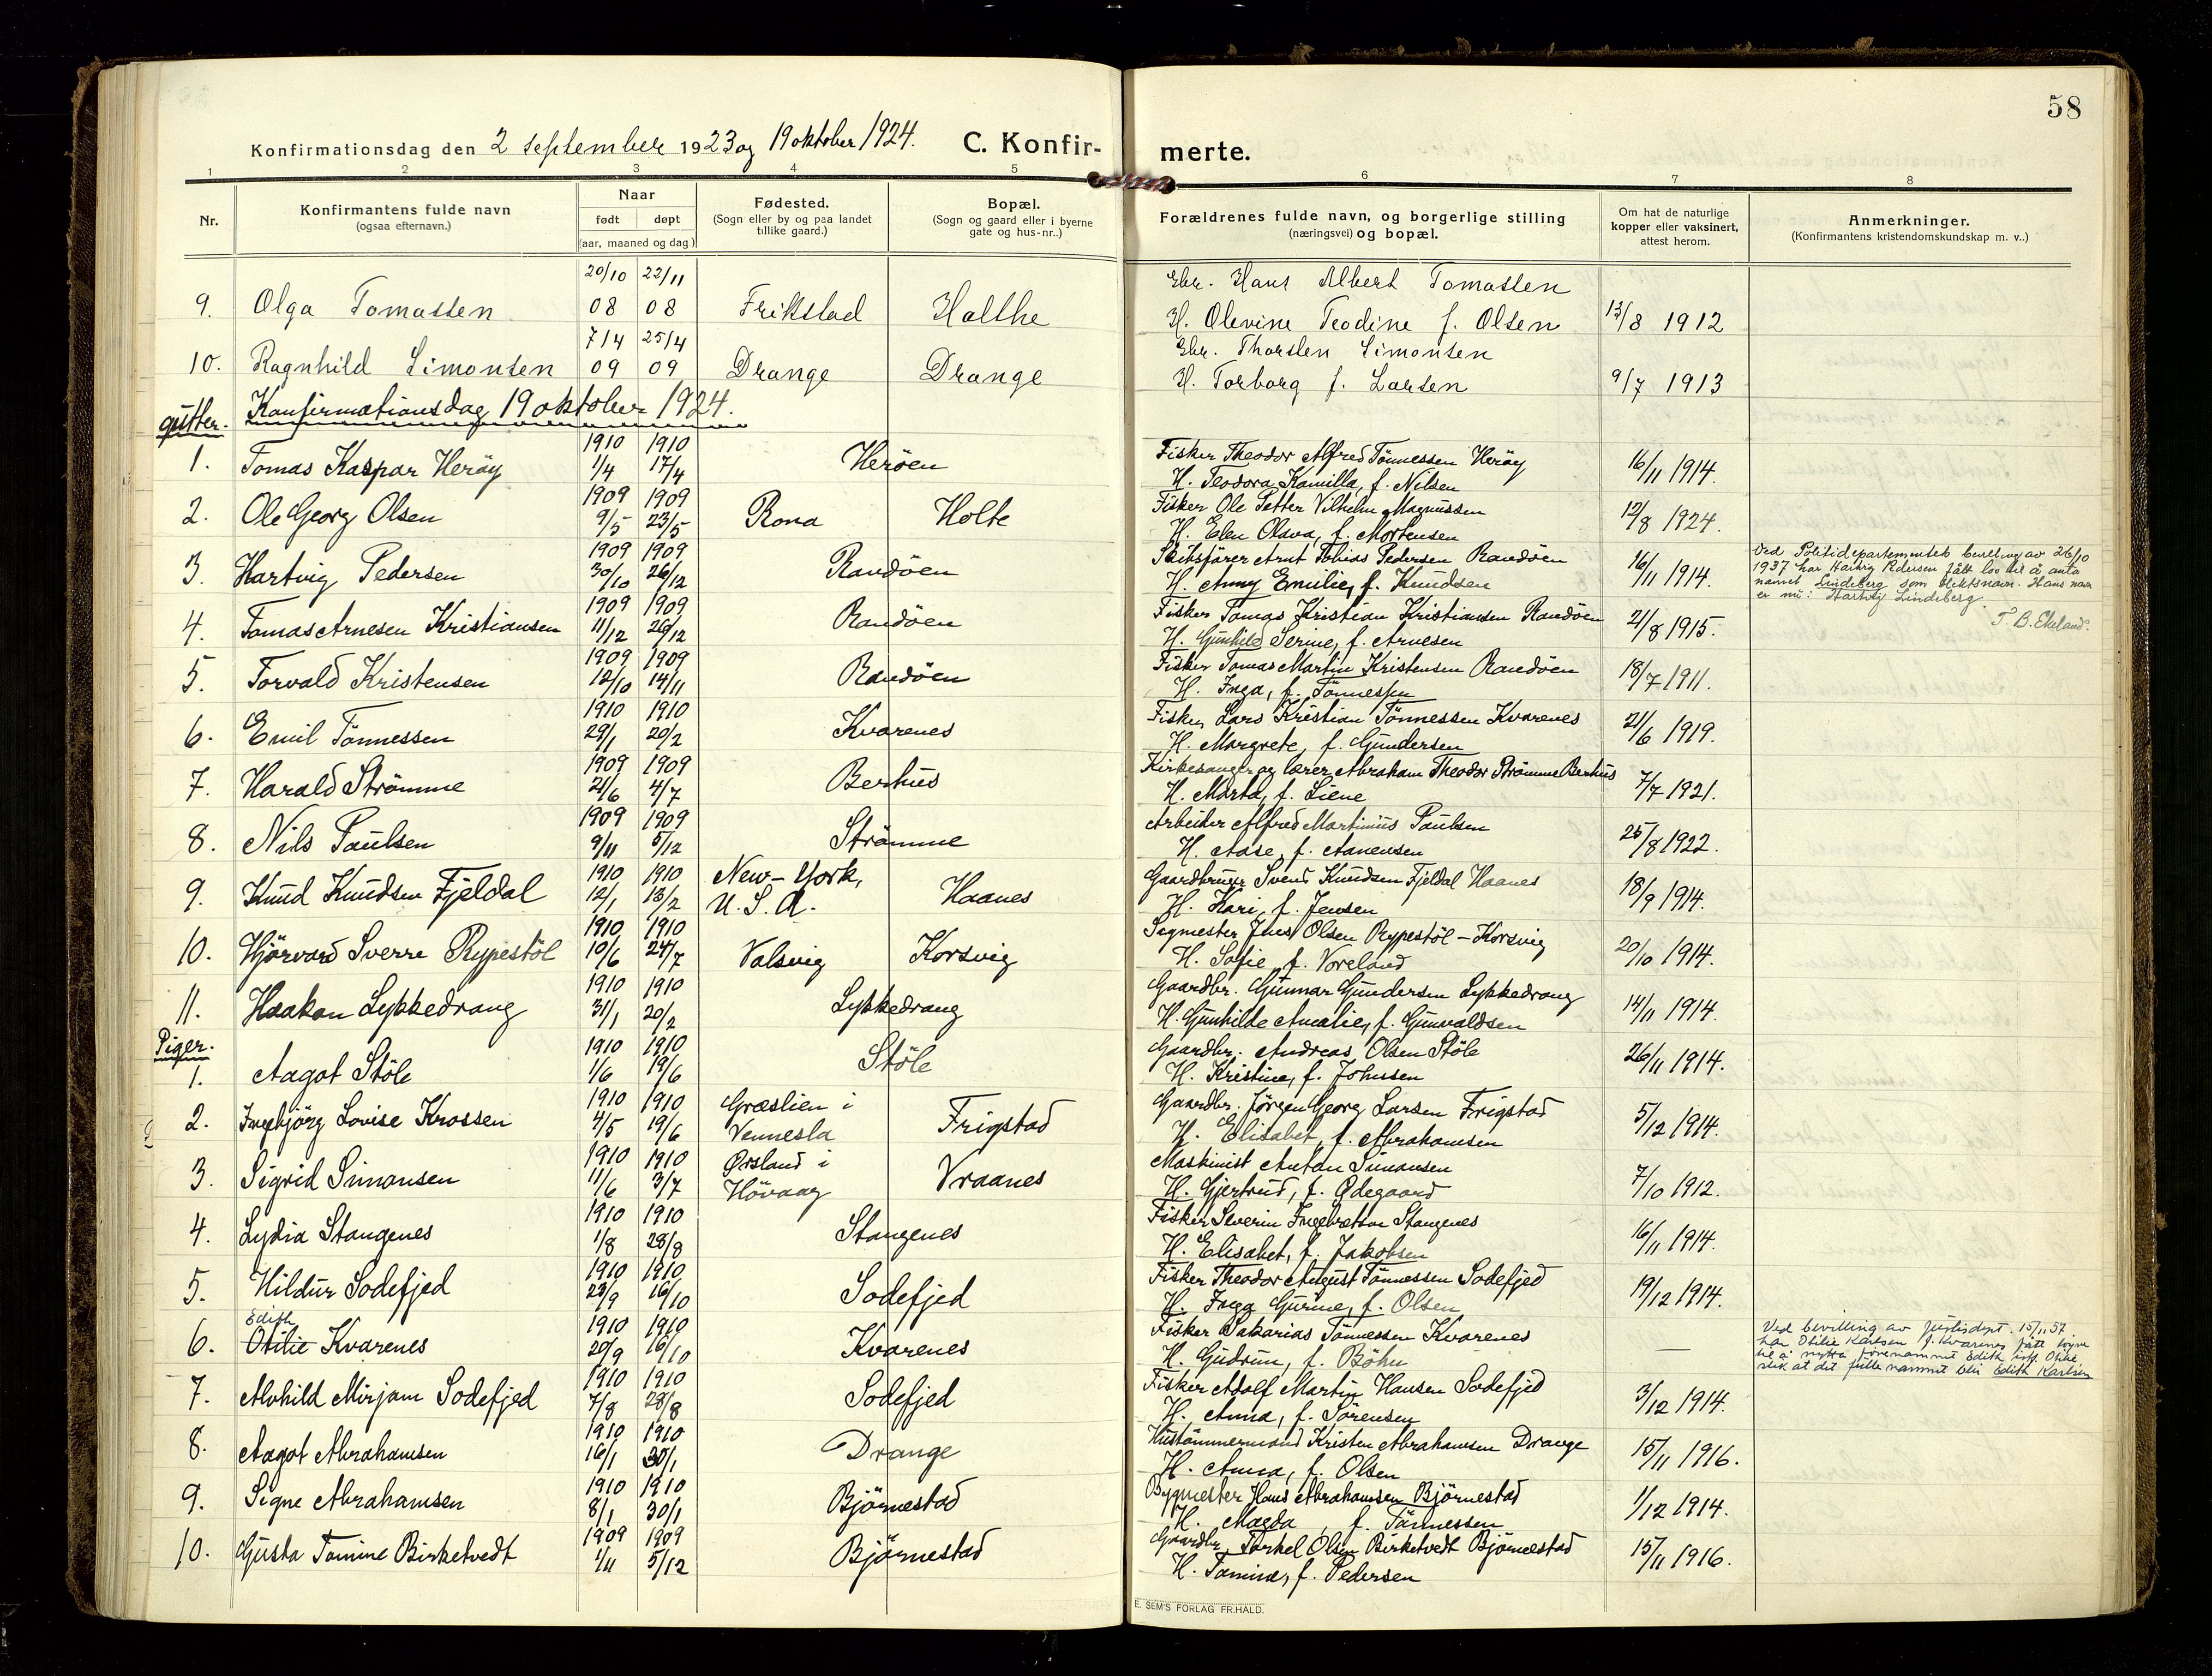 58
Konfirmationsdag den 2 september 1923 og 19 oktober 1924. C. Konfir- merte.
1 2 3 4 5 6 7 8
Nr. Konfirmantens fulde navn (ogsaa efternavn.) Naar født døpt (aar, maaned og dag) Fødested. (Sogn eller by og paa landet tillike gaard.) Bopæl. (Sogn og gaard eller i byerne gate og hus-nr..) Forældrenes fulde navn, og borgerlige stilling (næringsvei) og bopæl. Om hat de naturlige kopper eller vaksinert, attest herom. Anmerkninger. (Konfirmantens kristendomskundskap m. v..)
20/10 22/11 Gbr. Hans Albert Tomassen
9. Olga Tomassen 08 08 Frikstad Holthe H. Olevine Teodine f. Olsen 13/8 1912
7/4 25/4 Gbr. Thorsten Simonsen
10. Ragnhild Simonsen 09 09 Drange Drange H. Torborg f. Larsen 9/7 1913
gutter. Konfirmationsdag 19 oktober 1924.
1910 1910 Fisker Theodor Alfred Tönnessen Heröy
1. Tomas Kaspar Heröy 1/4 17/4 Heröen H. Teodora Kamilla, f. Nilsen 16/11 1914.
1909 1909 Fisker Ole Petter Vilhelm Magnussen
2. Ole Georg Olsen 9/5 23/5 Rona Holte H. Elen Olava, f. Mortensen 12/8 1924.
1909 1909 Skibsförer Arnt Tobias Pedersen Randöen
3. Hartvig Pedersen 30/10 26/12 Randöen H. Anny Emilie, f. Knudsen 16/11 1914.
Ved Politidepartementets bevilling av 26/10
1937 har Hartvig Pedersen fått lov til å anta
namnet Lindeberg som slektsnavn. Hans navn
er nu: Hartvig Lindeberg.
T. B. Ekeland.
1909 1909 Fisker Tomas Kristian Kristiansen Randöen
4. Tomas Arnesen Kristiansen 11/12 26/12 Randöen H. Gunhild Serine, f. Arnesen 21/8 1915.
1909 1909 Fisker Tomas Martin Kristensen Randöen
5. Torvald Kristensen 12/10 14/11 Randöen H. Inga, f. Tönnessen 18/7 1911.
1910 1910 Fisker Lars Kristian Tönnessen Kvarenes
6. Emil Tönnessen 29/1 20/2 Kvarenes H. Margrete, f. Gundersen 21/6 1919.
1909 1909 Kirkesanger og lærer Abraham Theodor Strömme Berhus
7. Harald Strömme 21/6 4/7 Berhus H. Marta, f. Liene 7/7 1921.
1909 1909 Arbeider Alfred Martinius Paulsen
8. Nils Paulsen 9/11 5/12 Strömme H. Aase, f. Aanensen 25/8 1922.
1910 1910 New-York, Gaardbruger Svend Knudsen Fjeldal Haanes
9. Knud Knudsen Fjeldal 12/1 13/2 U.S.A. Haanes H. Kari, f. Jensen 18/9 1914.
1910 1910 Olsen Rypestöl - Korsvig
10. Hjörvard Sverre Rypestöl 10/6 24/7 Valsvig Korsvig H. Sofie, f. Voreland 20/10 1914.
1910 1910 Gaardbr. Gunnar Gundersen Lykkedrang
11. Haakon Lykkedrang 31/1 20/2 Lykkedrang H. Gunhilde Amalie, f. Gunvaldsen 14/11 1914.
Piger. 1910 1910 Gaardbr. Andreas Olsen Stöle
1. Aagot Stöle 1/6 19/6 Stöle H. Kristine, f. Johnsen 26/11 1914.
1910 1910 Græslien i Gaardbr. Jörgen Georg Larsen Frigstad
2. Ingebjörg Lovise Krossen 4/5 19/6 Vennesla Frigstad H. Elisabet, f. Abrahamsen 5/12 1914.
1910 1910 Ørsland i Maskinist Anton Simonsen
3. Sigrid Simonsen 11/6 3/7 Hövaag Vraanes H. Gjertrud, f. Ødegaard 7/10 1912.
1910 1910 Fisker Severin Ingebretsen Stangenes
4. Lydia Stangenes 1/8 28/8 Stangenes H. Elisabet, f. Jakobsen 16/11 1914.
1910 1910 Fisker Theodor August Tönnessen Sodefjed
5. Hildur Sodefjed 23/9 16/10 Sodefjed H. Inga Gurine, f. Olsen 19/12 1914.
Edith 1910 1910 Fisker Sakarias Tönnessen Kvarenes
6. Otilie Kvarenes 20/9 16/10 Kvarenes H. Gudrun, f. Böhn —
Ved bevilling av Justisdept. 15/11 57
har Otilie Karlsen f. Kvarenes fått løyve
til å nytta førenamnet Edith istf. Otilie,
slik at det fulle namnet blir Edith Karlsen
1910 1910 Fisker Adolf Martin Hansen Sodefjed
7. Alvhild Mirjam Sodefjed 7/8 28/8 Sodefjed H. Anna, f. Sörensen 3/12 1914.
1910 1910 Hustömmermand Kristen Abrahamsen Drange
8. Aagot Abrahamsen 16/1 30/1 Drange H. Anna, f. Olsen 15/11 1916.
1910 1910 Bygmester Hans Abrahamsen Björnestad
9. Signe Abrahamsen 8/1 30/1 Björnestad H. Magda, f. Tönnessen 1/12 1914.
1909 1909 Gaardbr. Torkel Olsen Birketvedt Björnestad
10. Gusta Tomine Birketvedt 1/11 5/12 Björnestad H. Tomine, f. Pedersen 15/11 1916.
E. SEM'S FORLAG FR.HALD.